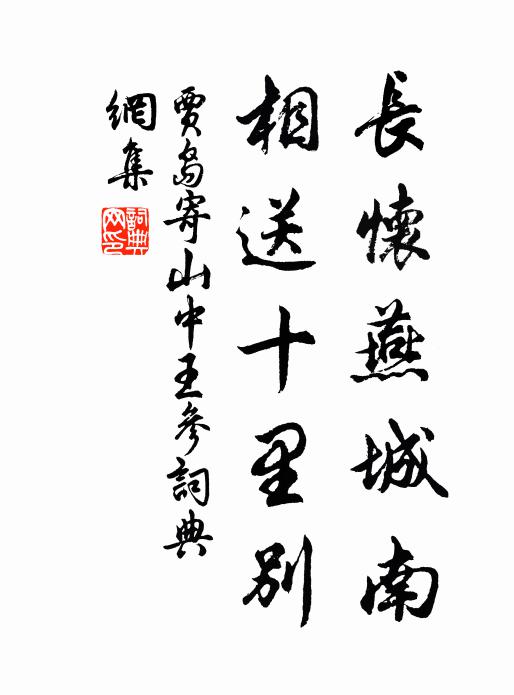 長懷燕城南
相送十里別
賈島寄山中王參詞典
網集
詞典
网印